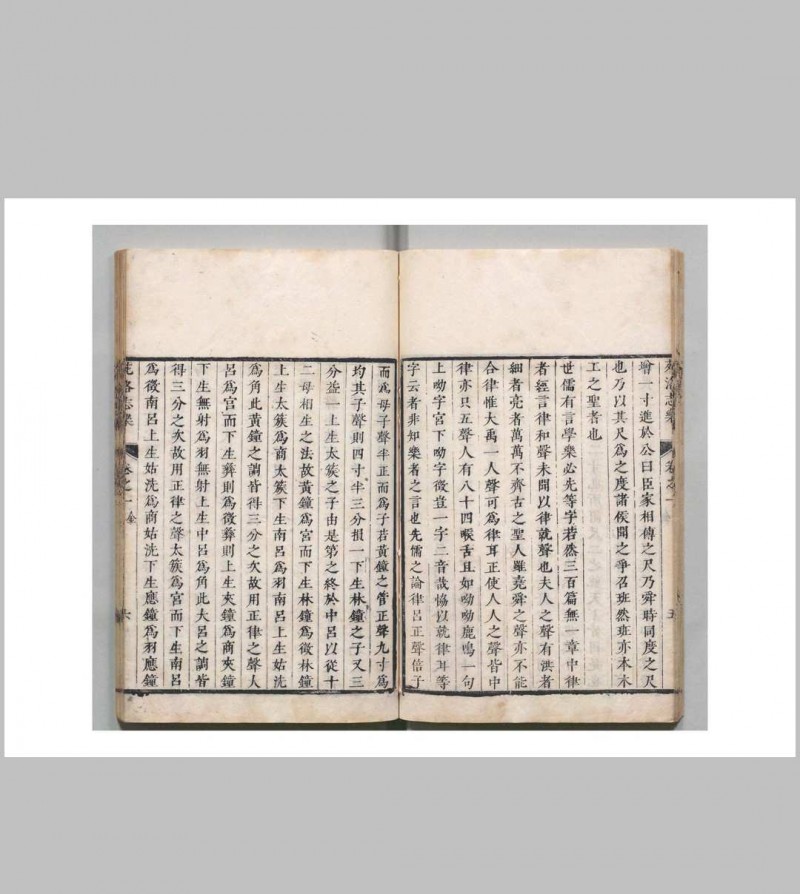 增一寸進於公曰臣家相傳之尺乃舜時同度之尺
也乃以其尺爲之度諸侯聞之爭召班然班亦木木
工之聖者也
世儒有言學樂必先等字若然三百篇無一章中律
者經言律和聲未聞以律就聲也夫人之聲有洪者
細者亮者萬萬不齊古之聖人雖堯舜之聲亦不能
合律惟大禹一人聲可爲律耳正使人人之聲皆中
律亦只五聲人有八十四喉舌且如呦呦鹿鳴一句
上呦字宮下呦字徵豈一字二音哉恊以就律耳等
字云者非知樂者之言也先儒之論律呂正聲倍子
而爲母子聲半正而爲子若黃鐘之管正聲九寸爲
均其子聲則四寸半三分損一下生林鐘之子又三
分益一上生太簇之子由是第之終於中呂以從十
二母相生之法故黃鐘爲宮而下生林鐘爲徵林鐘
上生太簇爲商太簇下生南呂爲羽南呂上生姑洗
爲角此黃鐘之調皆得三分之次故用正律之聲人
呂爲宮而下生彝則爲徵彝則上生夾鐘爲商夾鐘
下生無射爲羽無射上生中呂爲角此大呂之調皆
得三分之次故用正律之聲太簇爲宮而下生南呂
爲徵南呂上生姑洗爲商姑洗下生應鐘爲羽應鐘
苑洛志樂 卷之一 六